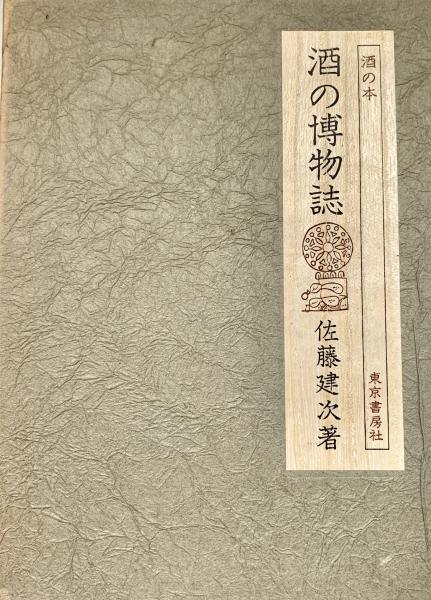 酒の本
酒の博物誌
佐藤建次著
東京書房社